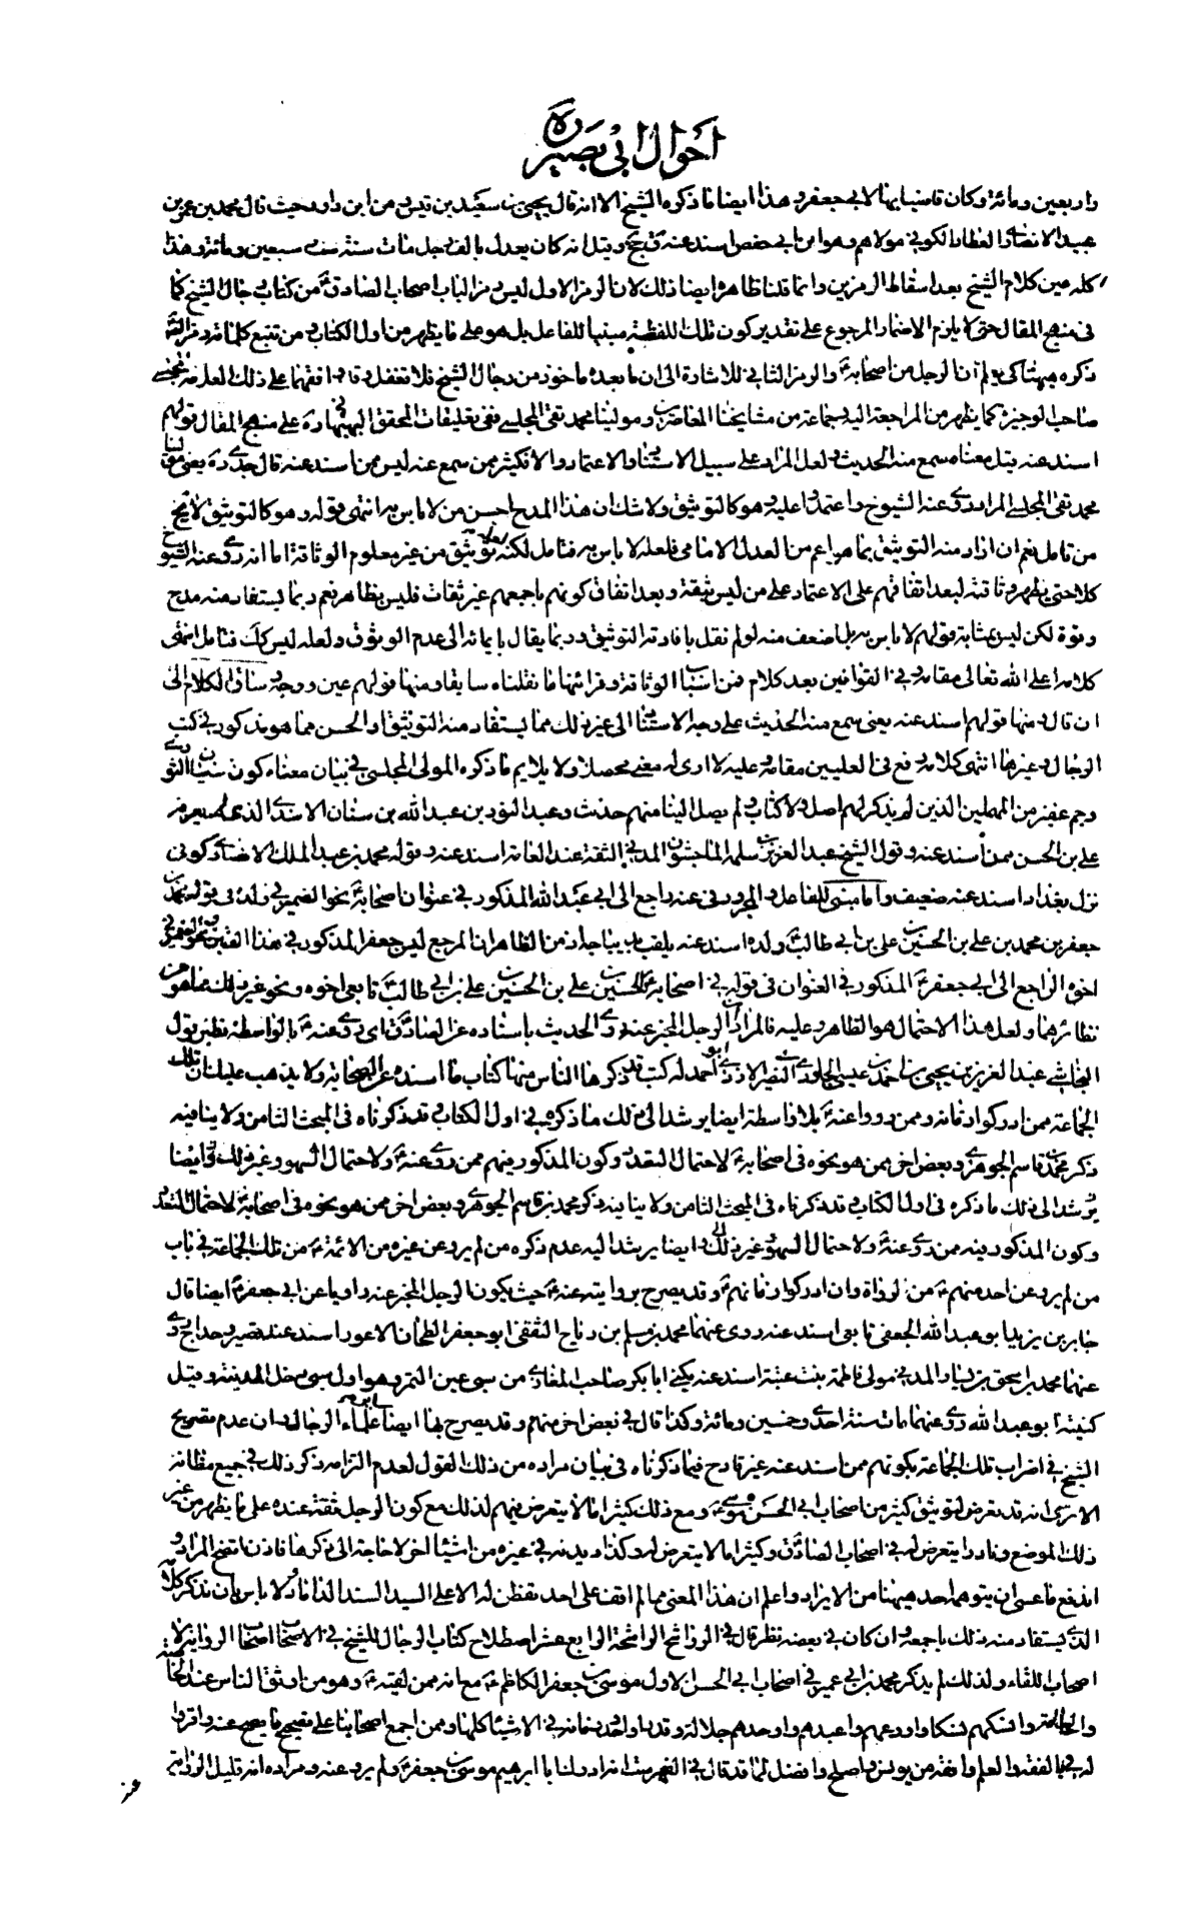 احوال ابی بصیر ره
واربعین ومائة وكان قاضیا بها لابی جعفر و هذا ایضا ما ذكره الشیخ الا انه قال یحیی بن سعید بن قیس و من ابن داود حیث قال محمد بن عمر بن
عبید الانصاری العطار الكوفی مولاهم وهو ابن ابی حفص اسند عنه ق جخ وقیل انه كان یعدل بالف رجل مات سنة سبعین ومائة وهذا
كله عین كلام الشیخ بعد اسقاط الرمزین وانما قلنا ظاهره ایضا ذلك لان الرمز الاول لیس رمز الباب اصحاب الصادق ع من كتاب رجال الشیخ كما
فی منهج المقال حتی لا یلزم الاضمار المرجوع علی تقدیر كون تلك اللفظة مبنیا للفاعل بل هو علی ما یظهر من اول الكتاب و من تتبع كلماته رمز
ذكره هیهنا كی یعلم ان الرجل من اصحابه ع والرمز الثانی للاشارة الی ان ما بعده ماخوذ من رجال الشیخ فلا تغفل وقد وافقهما علی ذلك العلامة
صاحب الوجیزة كما یظهر من المراجعة الیه وجماعة من مشایخنا المعاصرین ومولینا محمد تقی المجلسی ففی تعلیقات المحقق البهبهانی ره علی منهج المقال قولهم
اسند عنه قیل معناه سمع منه الحدیث ولعل المراد علی سبیل الاستناد والاعتماد والا فكثیر ممن سمع عنه لیس ممن اسند عنه قال جدی ره یعنی مولینا
محمد تقی المجلسی المراد روی عنه الشیوخ واعتمدوا علیه وهو كالتوثیق ولا شك ان هذا المدح احسن من لا باس به انتهی قوله وهو كالتوثیق لا یخ
من تامل نعم ان اراد منه التوثیق بما هو اعم من العدل الامامی فلعله لا باس به فتامل لكنه توثیق من غیر معلوم الوثاقة اما انه روی عنه الشیوخ
كلا حتی یظهر وثاقته لبعد اتفاقهم علی الاعتماد علی من لیس بثقة وبعد اتفاق كونهم باجمعهم غیر ثقات فلیس بظاهر نعم ربما یستفاد منه مدح
وقوة لكن لیس بمثابة قولهم لا باس به بل اضعف منه لو لم نقل بافادته التوثیق وربما یقال بایمائه الی عدم الوثوق ولعله لیس كك فتامل انتهی
كلامه اعلی الله تعالی مقامه وفی القوانین بعد كلام فمن اسباب الوثاقة وقرائنها ما نقلناه سابقا ومنها قولهم عین ووجه وساق الكلام الی
ان قال ومنها قولهم اسند عنه یعنی سمع منه الحدیث علی وجه الاستناد الی غیر ذلك مما یستفاد منه التوثیق والحسن مما هو مذكور فی كتب
الرجال وغیرها انتهی كلامه رفع فی العلیین مقامه وعلیه لا اری له معنی محصلا ولا یلایم ما ذكره المولی المجلسی فی بیان معناه كون سفیان الثوری
وجم غفیر من المهملین الذین لم یذكر لهم اصل ولا كتاب ولم یصل الینا منهم حدیث وعبد النور بن عبد الله بن سنان الاسدی الذی
علی بن الحسن ممن اسند عنه وقول الشیخ عبد العزیز بن سلمة الماجشون المدنی الثقة عند العامة اسند عنه وقوله محمد بن عبد الملك الانصاری كوفی
نزل بغداد اسند عنه ضعیف واما مبنی للفاعل والمجرور فی عنه راجع الی ابی عبد الله المذكور فی عنوان اصحابه ع نحو الضمیر فی ولده فی قوله محمد بن
جعفر بن محمد بن علی بن الحسین بن علی بن ابی طالب ع ولده اسند عنه یلقب دیباجة اذ من الظاهر ان المرجع لیس جعفر المذكور فی هذا القبیل نحو الضمیر فی
اخوه الراجع الی ابی جعفر ع المذكور فی العنوان فی قوله فی اصحابه ع الحسین بن علی بن الحسین بن علی بن ابی طالب ع تابعی اخوه ونحو غیر ذلك مما هو من
نظائرهما ولعل هذا الاحتمال هو الظاهر وعلیه فالمراد ان الرجل المخبر عنه روی الحدیث باسناده عن الصادق ع ای روی عنه ع بالواسطة نظیر قول
النجاشی عبد العزیز بن یحیی بن احمد بن عیسی الجلودی البصری الازدی ابو احمد له كتب قد ذكرها الناس منها كتاب ما اسنده عن الصحابة ولا یذهب علیك ان تلك
الجماعة ممن ادركوا زمانه وممن رووا عنه ع بلا واسطة ایضا یرشد الی ذلك ما ذكره فی اول الكتاب وقد ذكرناه فی المبحث الثامن ولا ینافیه
ذكر محمد بن قاسم الجوهری وبعض اخر ممن هو نحوه فی اصحابه ع لاحتمال التعدد وكون المذكور فیهم ممن روی عنه ع ولاحتمال السهو وغیر ذلك وایضا
یرشد الی ذلك ما ذكره فی اول الكتاب وقد ذكرناه فی المبحث الثامن ولا ینافیه ذكر محمد بن قاسم الجوهری وبعض اخر ممن هو نحوه فی اصحابه ع لاحتمال التعدد
وكون المذكور فیه ممن روی عنه ع ولاحتمال السهو وغیر ذلك وایضا یرشد الیه عدم ذكره من لم یرو عن غیره من الائمة ع من تلك الجماعة فی باب
من لم یرو عن احد منهم ع من الرواة وان ادركوا زمانهم ع وقد یصرح بروایته عنه ع حیث یكون الرجل المخبر عنه راویا عن ابی جعفر ع ایضا قال
جابر بن یزید ابو عبد الله الجعفی تابعی اسند عنه روی عنهما محمد بن مسلم بن رباح الثقفی ابو جعفر الطحان الاعور اسند عنه قصیر وحداج روی
عنهما محمد بن اسحق بن یسار المدنی مولی فاطمة بنت عتبة اسند عنه یكنی ابا بكر صاحب المغازی من سبی عین التمر وهو اول سبی دخل المدینة وقیل
كنیته ابو عبد الله روی عنهما مات سنة احدی وخمسین ومائة وكذا قال فی بعض اخر منهم وقد یصرح بهذا ایضا علماء الرجال وان عدم تصریح
الشیخ فی اضراب تلك الجماعة بكونهم ممن اسند عنه غیر قادح فیما ذكرناه فی بیان مراده من ذلك القول لعدم التزامه ذكر ذلك فی جمیع مظانه
الا تری انه قد یعرض لتوثیق كثیر من اصحاب ابی الحسن موسی ع ومع ذلك كثیرا ما لا یتعرض فیهم لذلك مع كون الرجل ثقة عنده علی ما یظهر من غیر
ذلك الموضع ونادرا یتعرض له فی اصحاب الصادق ع وكثیرا ما لا یتعرض له وكذا دیدنه فی غیره من اشیاء اخر لا حاجة الی ذكرها فاذن اتضح المراد و
اندفع ما عسی ان یتوهم احد هیهنا من الایراد واعلم ان هذا المعنی مما لم اقف علی احد تفطن له الا علی السید السند الداماد ولا باس بان نذكر كلامه
الذی یستفاد منه ذلك باجمعه وان كان فی بعضه نظر قال فی الرواشح الراشحة الرابع عشر اصطلاح كتاب الرجال للشیخ فی الاصحاب اصحاب الروایة لا
اصحاب اللقاء ولذلك لم یذكر محمد بن ابی عمیر فی اصحاب ابی الحسن الاول موسی بن جعفر الكاظم ع مع انه ممن لقیه ع وهو من اوثق الناس عند الخاصة
والعامة وانسكهم نسكا واورعهم واعبدهم واوحدهم جلالة وقدرا واوحد زمانه فی الاشیاء كلها وممن اجمع اصحابنا علی تصحیح ما یصح عنه واقروا
له فی بالفقه والعلم وافقه من یونس واصلح وافضل لما قد قال فی الفهرست انه ادرك ابا ابراهیم موسی بن جعفر ع ولم یرو عنه ومراده انه قلیل الروایة
عنه